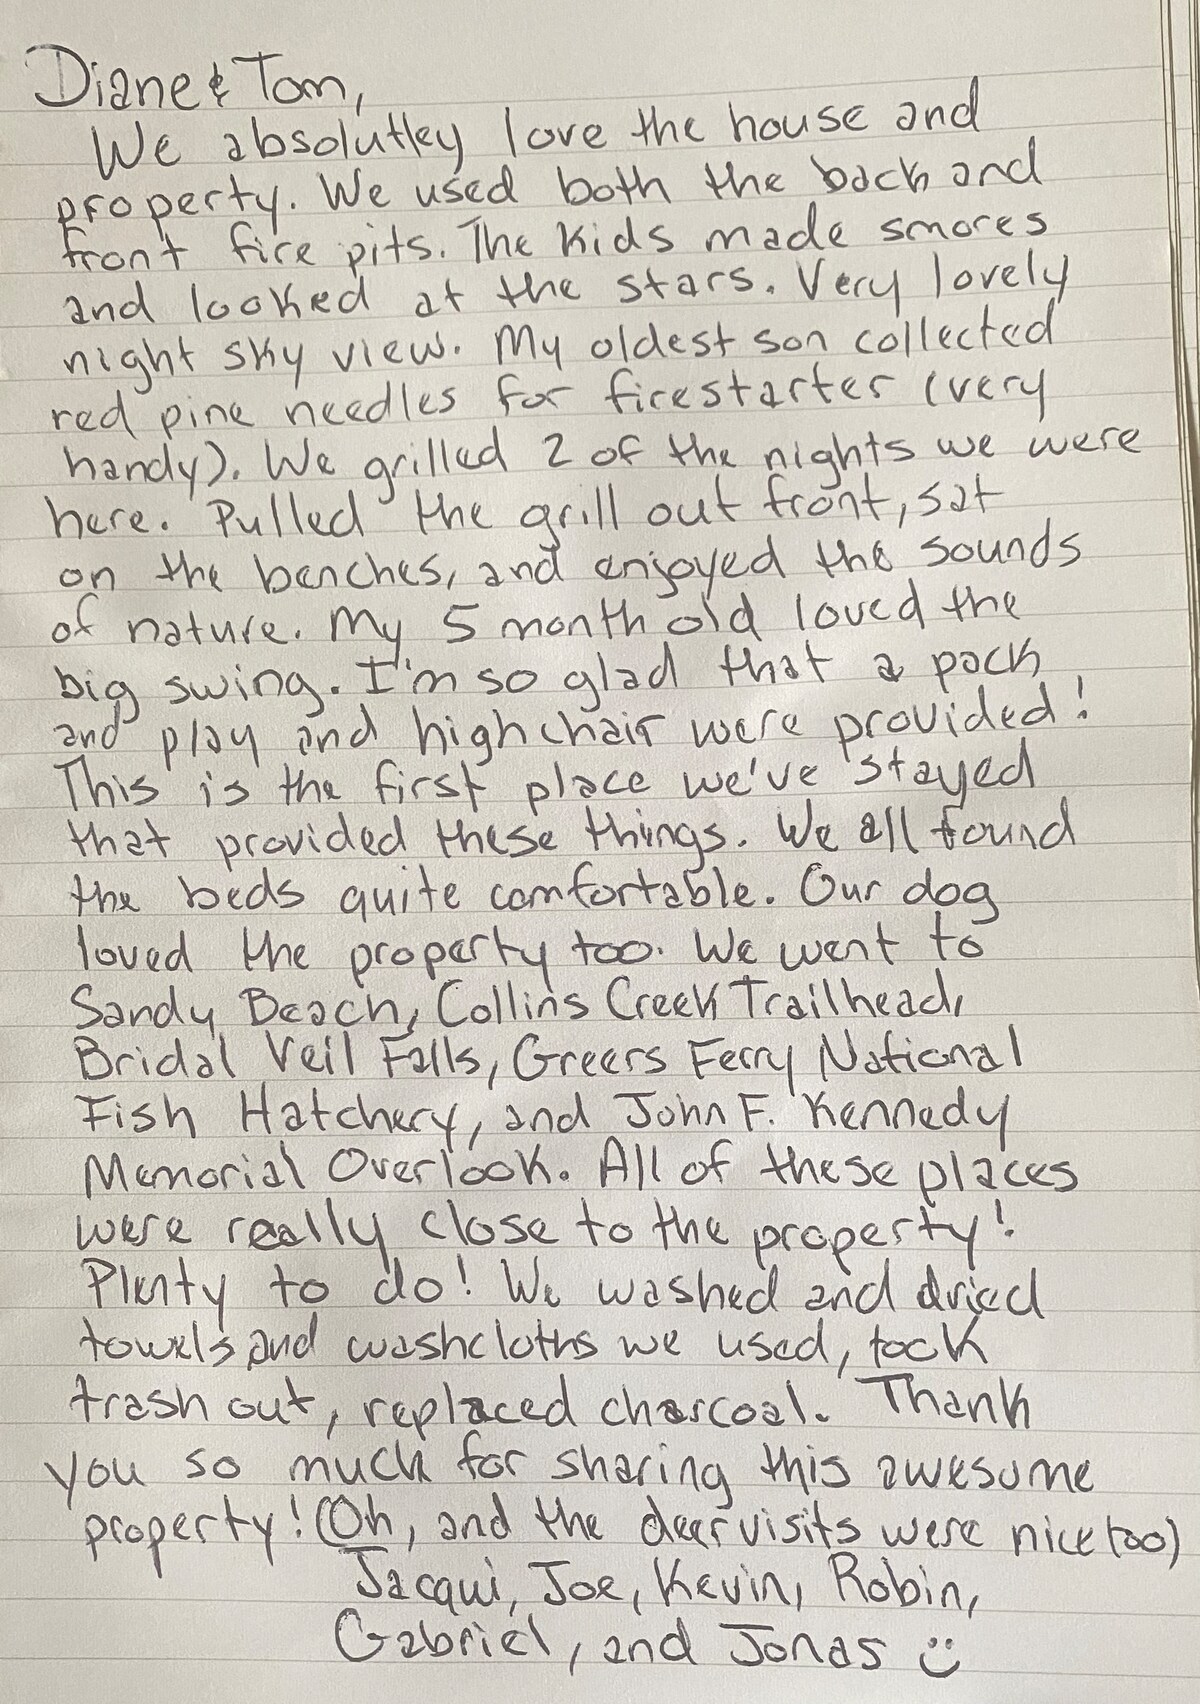 Diane & Tom,
We absolutley love the house and
property. We used both the back and
front fire pits. The kids made smores
and looked at the stars. Very lovely
night sky view. My oldest son collected
red pine needles for firestarter (very
handy). We grilled 2 of the nights we were
here. Pulled the grill out front, sat
on the benches, and enjoyed the sounds
of nature. My 5 month old loved the
big swing. I'm so glad that a pack
and play and highchair were provided!
This is the first place we've stayed
that provided these things. We all found
the beds quite comfortable. Our dog
loved the property too. We went to
Sandy Beach, Collins Creek Trailhead,
Bridal Veil Falls, Greers Ferry National
Fish Hatchery, and John F. Kennedy
Memorial Overlook. All of these places
were really close to the property!
Plenty to do! We washed and dried
towels and washcloths we used, took
trash out, replaced charcoal. Thank
you so much for sharing this awesome
property! (Oh, and the deer visits were nice too)
Jacqui, Joe, Kevin, Robin,
Gabriel, and Jonas :)